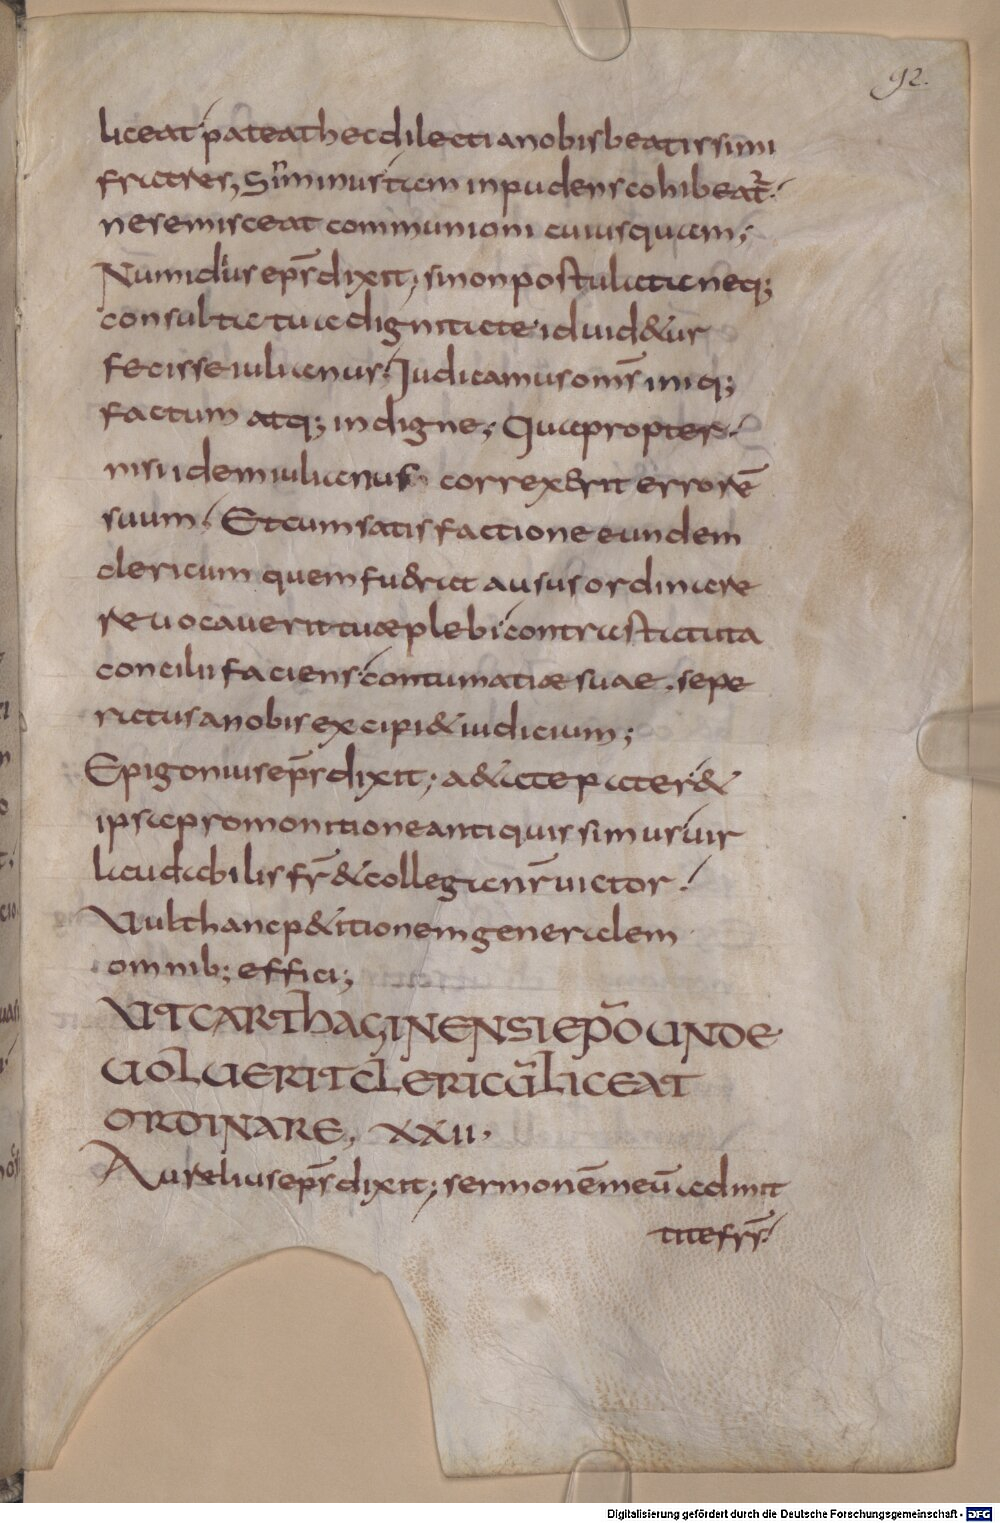 92.
liceat pateat hec dilecti a nobis beatissimi
fratres, Sim̄minus tam inpudens cohibeat᷑.
ne se misceat communioni cuiusquam;
Numidius ep̄s dixit; si non postulata neq;
consulta tua dignitate id uid&ur
fecisse iulianus. Judicamus om̄s iniq;
factum atq; indigne; Quapropter
nisi idem iulianus correx&rit errorē
suum. Et cum satisfactione eundem
clericum quem fu&rat ausus ordinare
reuocauerit tuæ plebi contra statuta
concilii faciens contumatiæ suae. sepe
ratus a nobis excipi& iudicium;
Epigonius ep̄s dixit; a&ate pater &
ipsa promonitione antiquissimus uir
laudabilis fr̄ & collega nr̄ uictor.
Uult hanc p&itionem generalem
omnib; effici;
UT CARTHAGINENSI EP̄O UNDE
UOLUERIT CLERICŪ LICEAT
ORDINARE, XXII.
Aurelius ep̄s dixit; sermonē meū admit
tite fr̄r̄.
Digitalisierung gefördert durch die Deutsche Forschungsgemeinschaft - DFG